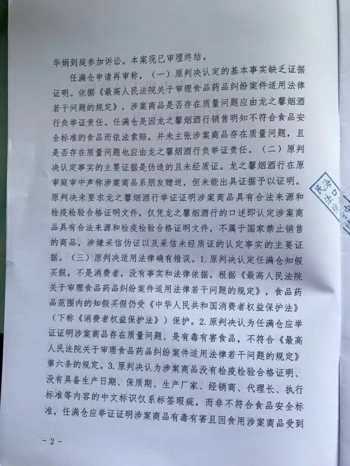 华娟到庭参加诉讼。本案现已审理终结。
任满仓申请再审称，（一）原判决认定的基本事实缺乏证据
证明。依据《最高人民法院关于审理食品药品纠纷案件适用法律
若干问题的规定》，涉案商品是否存在质量问题应由龙之馨烟酒
行负举证责任。任满仓是因龙之馨烟酒行销售明知不符合食品安
全标准的食品而依法索赔，并未主张涉案商品存在质量问题，且
是否存在质量问题也应由龙之馨烟酒行负举证责任。（二）原判
决认定事实的主要证据是伪造的且未经质证。龙之馨烟酒行在原
审庭审中声称涉案商品系朋友赠送，但未能出具证据予以证明。
原判决未要求龙之馨烟酒行举证证明涉案商品具有合法来源和
检疫检验合格证明文件，仅凭龙之馨烟酒行的口述即认定涉案商
品具有合法来源和经检疫检验合格证明文件，不属于国家禁止销售
的商品，涉嫌采信伪证以及采信未经质证的认定事实的主要证
据。（三）原判决适用法律确有错误。1.原判决认定任满仓知假
买假，不是消费者，没有事实和法律依据。根据《最高人民法
院关于审理食品药品纠纷案件适用法律若干问题的规定》，食品药
品范围内的知假买假仍受《中华人民共和国消费者权益保护法》
（下称《消费者权益保护法》）保护。2.原判决认为任满仓应举
证证明涉案商品存在质量问题、是有毒有害食品，不符合《最高
人民法院关于审理食品药品纠纷案件适用法律若干问题的规定》
第六条的规定。3.原判决认为涉案商品没有检疫检验合格证明、
没有具备生产日期、保质期、生产厂家、经销商、代理长、执行
标准等内容的中文标识仅系标签瑕疵，而非不符合食品安全标
准，任满仓应举证证明涉案商品有毒有害且因食用涉案商品受到
- 2 -